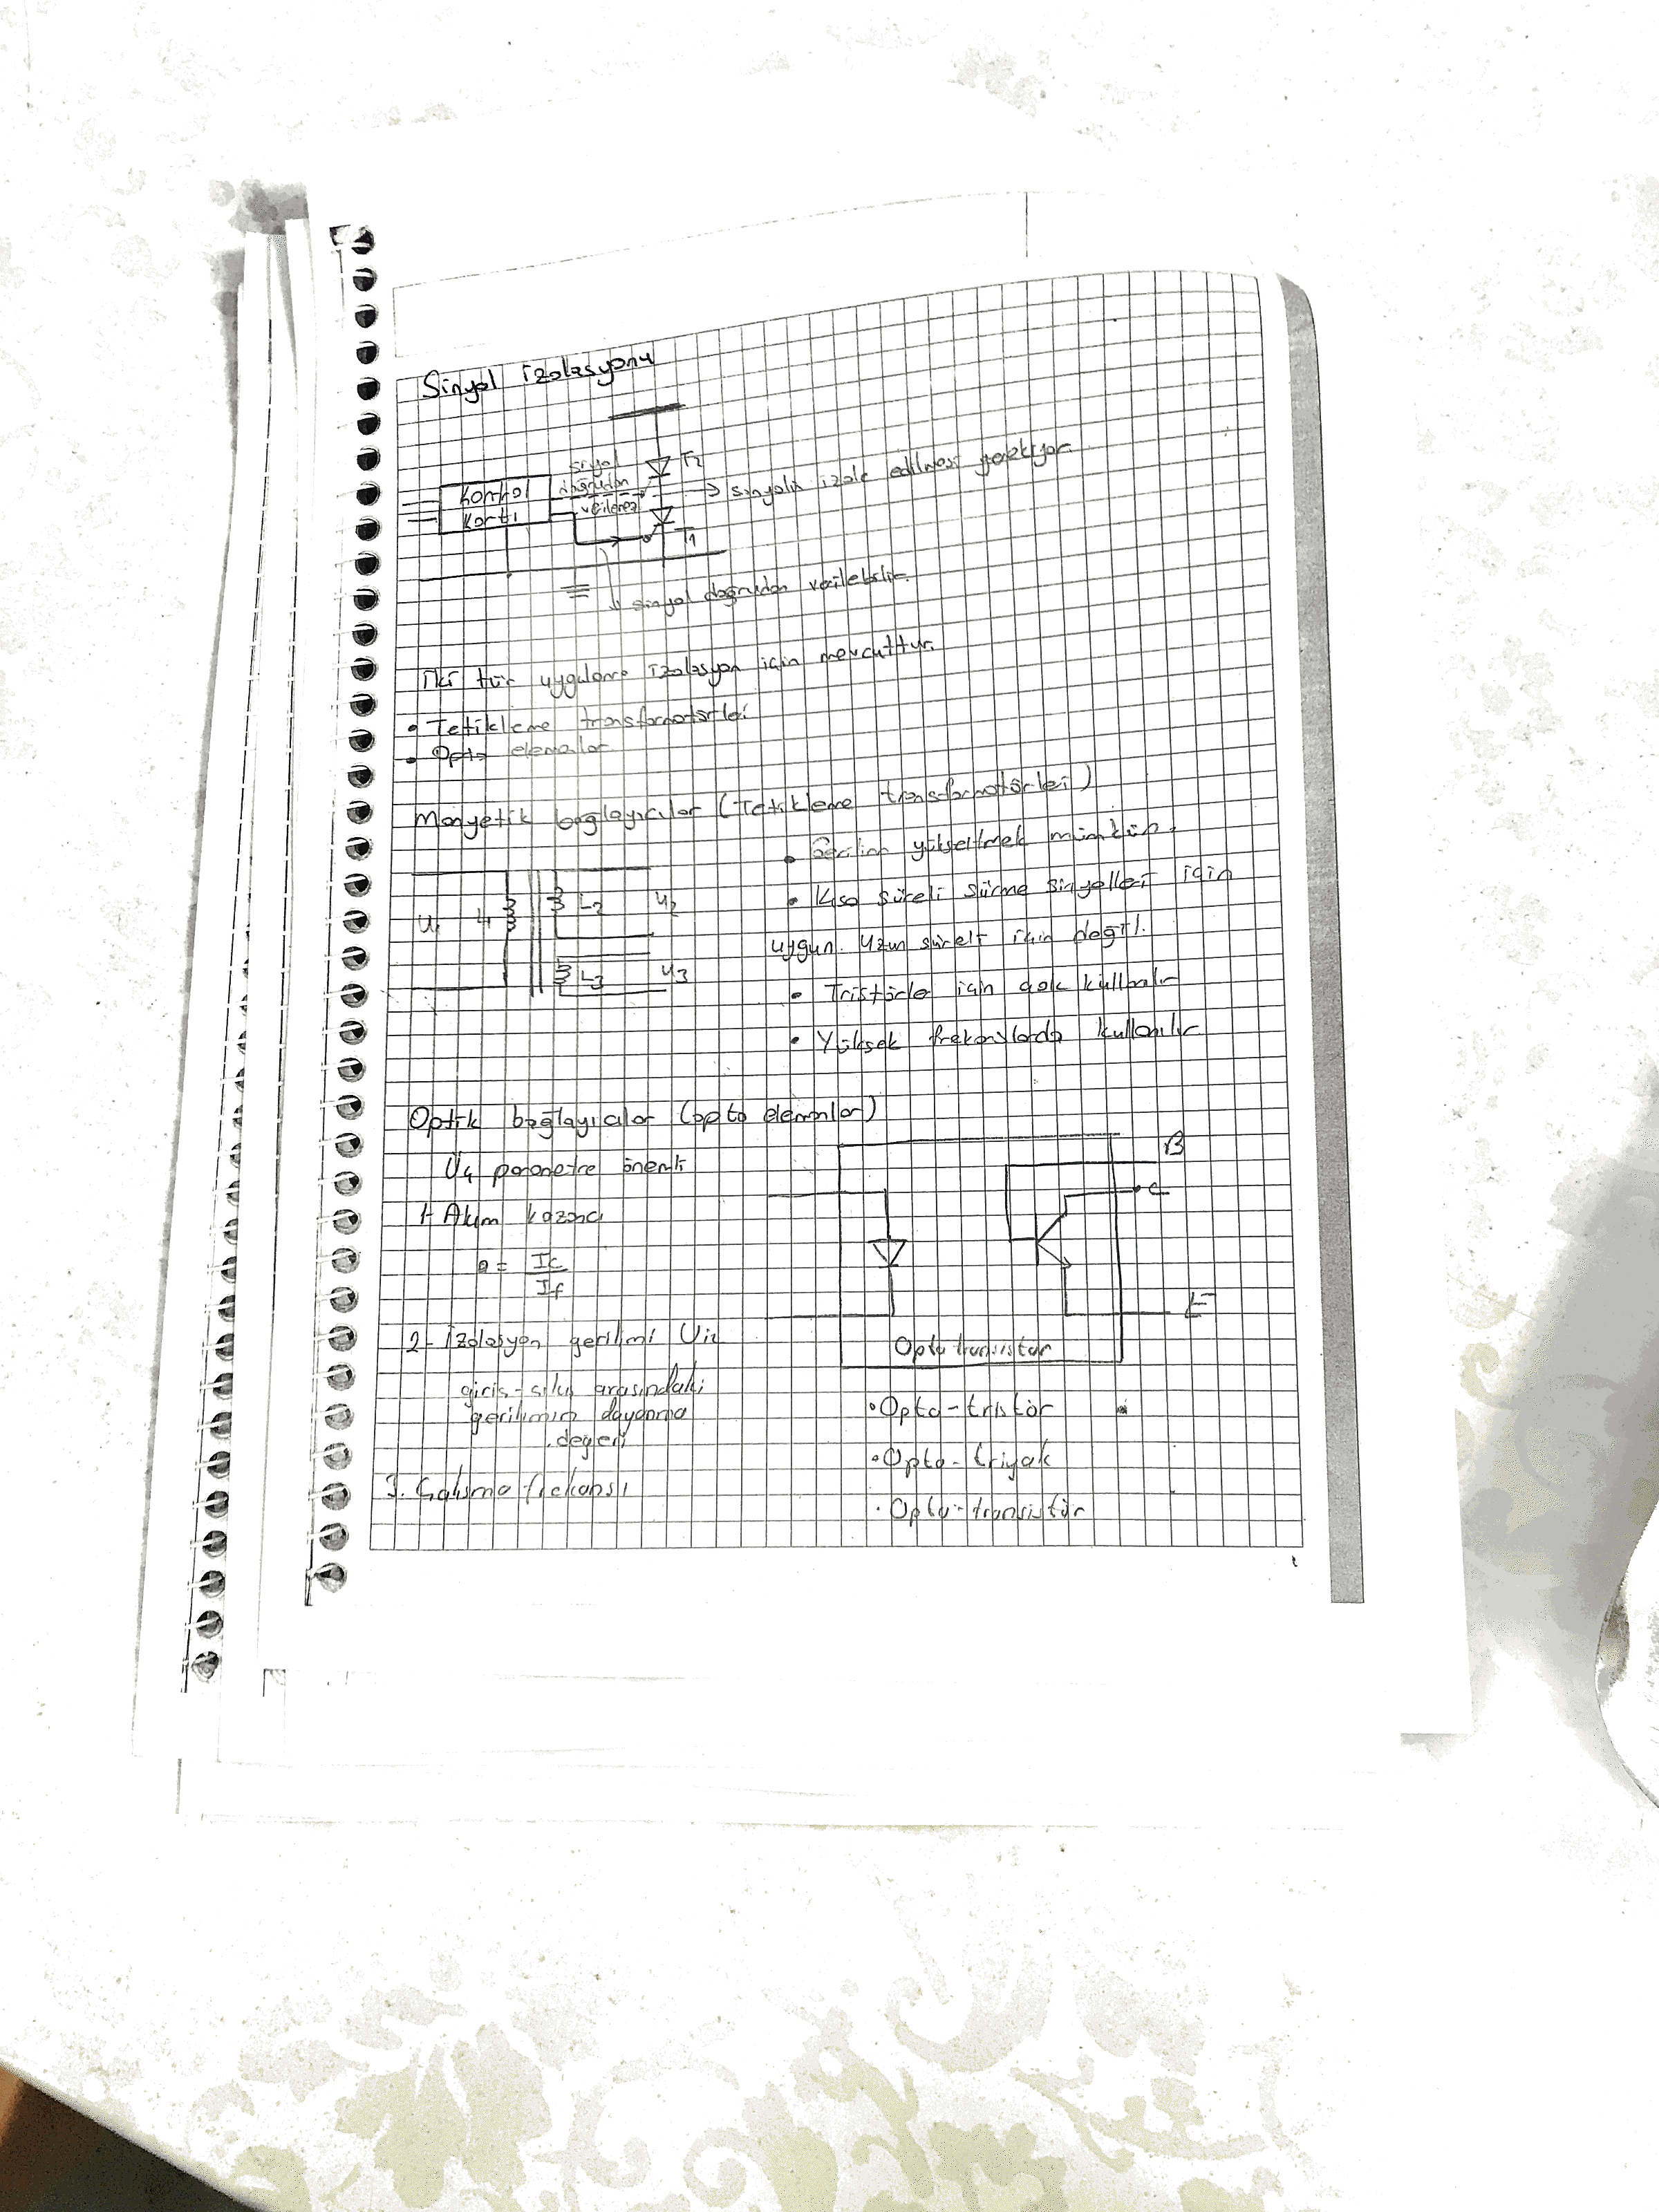 Sinyal izolasyonu
Kontrol
Kartı
sinyal
doğrudan
verilemez
T2
→ sinyalin izole edilmesi gerekiyor.
T1
sinyal doğrudan verilebilir.
İki tür uygulama izolasyon için mevcuttur.
• Tetikleme transformatörleri
• Opto elemanlar
Manyetik bağlayıcılar (Tetikleme transformatörleri)
U1 L1 L2 U2
L3 U3
• Gerilim yükseltmek mümkün.
• Kısa süreli sürme sinyalleri için
uygun. Uzun süreli için değil.
• Tristörler için çok kullanılır
• Yüksek frekanslarda kullanılır
Optik bağlayıcılar (opto elemanlar)
Üç parametre önemli
1- Akım kazancı
a = Ic / If
2- İzolasyon gerilimi Uiz
giriş-çıkış arasındaki
gerilimin dayanma
değeri
3. Çalışma frekansı
B
C
E
Opto transistör
• Opto-tristör
• Opto-triyak
• Opto-transistör